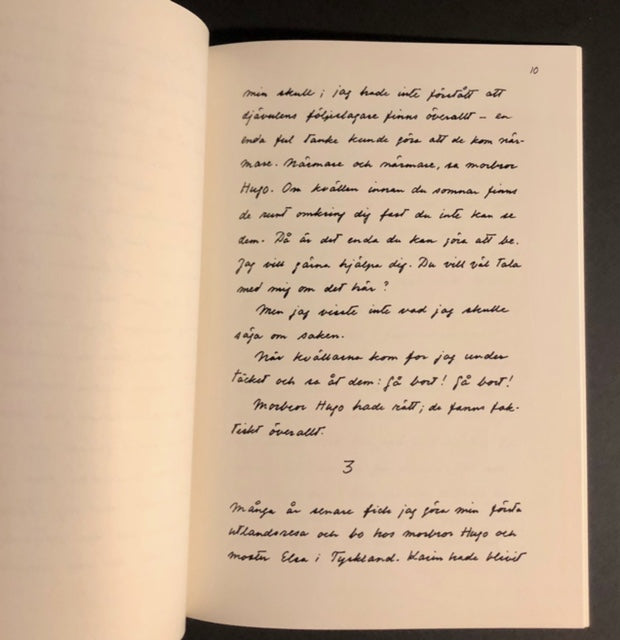 10
min skull; jag hade inte förstått att
djävulens följeslagare finns överallt – en
enda ful tanke kunde göra att de kom när-
mare. Närmare och närmare, sa morbror
Hugo. Om kvällen innan du somnar finns
de runt omkring dig fast du inte kan se
dem. Då är det enda du kan göra att be.
Jag vill gärna hjälpa dig. Du vill väl tala
med mig om det här?
Men jag visste inte vad jag skulle
säga om saken.
När kvällarna kom for jag under
täcket och sa åt dem: Gå bort! Gå bort!
Morbror Hugo hade rätt; de fanns fak-
tiskt överallt.
3
Många år senare fick jag göra min första
utlandsresa och bo hos morbror Hugo och
moster Elsa i Tyskland. Karin hade blivit